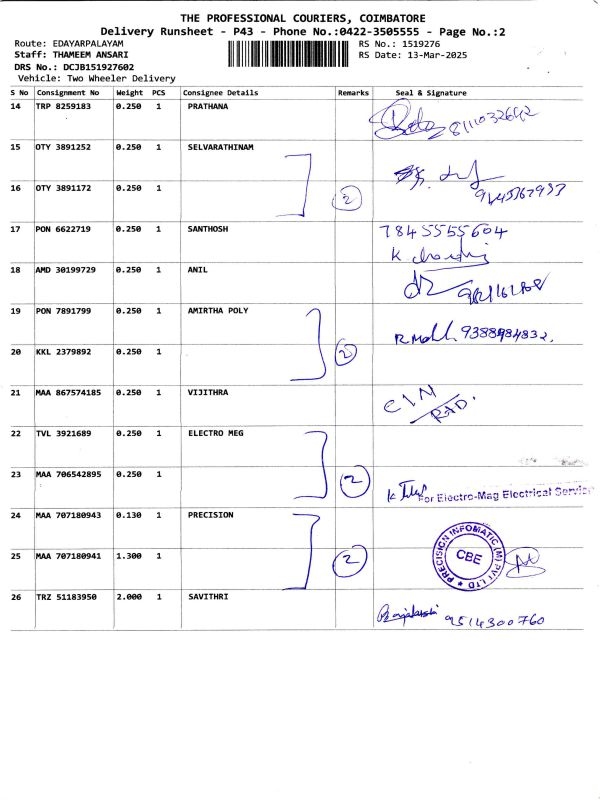 THE PROFESSIONAL COURIERS, COIMBATORE
Delivery Runsheet - P43 - Phone No.:0422-3505555 - Page No.:2
Route: EDAYARPALAYAM RS No.: 1519276
Staff: THAMEEM ANSARI RS Date: 13-Mar-2025
DRS No.: DCJB151927602
Vehicle: Two Wheeler Delivery
S No Consignment No Weight PCS Consignee Details Remarks Seal & Signature
14 TRP 8259183 0.250 1 PRATHANA 8111032642
15 OTY 3891252 0.250 1 SELVARATHINAM
16 OTY 3891172 0.250 1 2
17 PON 6622719 0.250 1 SANTHOSH 7845555604
K
18 AMD 30199729 0.250 1 ANIL
19 PON 7891799 0.250 1 AMIRTHA POLY 9388984832.
20 KKL 2379892 0.250 1 2
21 MAA 867574185 0.250 1 VIJITHRA
22 TVL 3921689 0.250 1 ELECTRO MEG
23 MAA 706542895 0.250 1 2 For Electro-Mag Electrical Service
24 MAA 707180943 0.130 1 PRECISION PRECISION INFOMATIC (M) PVT LTD
25 MAA 707180941 1.300 1 2 CBE
26 TRZ 51183950 2.000 1 SAVITHRI 9514300760